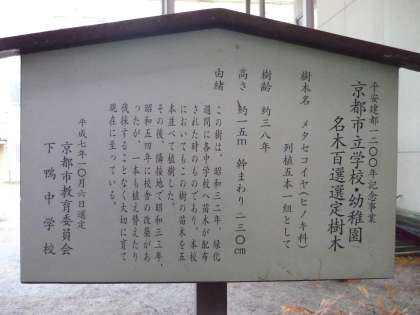 平安建都一二〇〇年記念事業
京都市立学校・幼稚園
名木百選選定樹木
樹木名 メタセコイヤ(ヒノキ科)
列植五本一組として
樹齢 約三八年
高さ 約一五m 幹まわり 二三〇cm
由緒
この樹は、昭和三二年、緑化
週間に各中学校へ苗木が配布
された時のものであり、本校
においてもこの樹の苗木を五
本並べて植樹した。
その後、隣接地で昭和三三年、
昭和五四年に校舎の改築があ
ったが、一本も植え替えたり
伐採することなく大切に育て
現在に至っている。
平成七年一〇月六日選定
京都市教育委員会
下鴨中学校